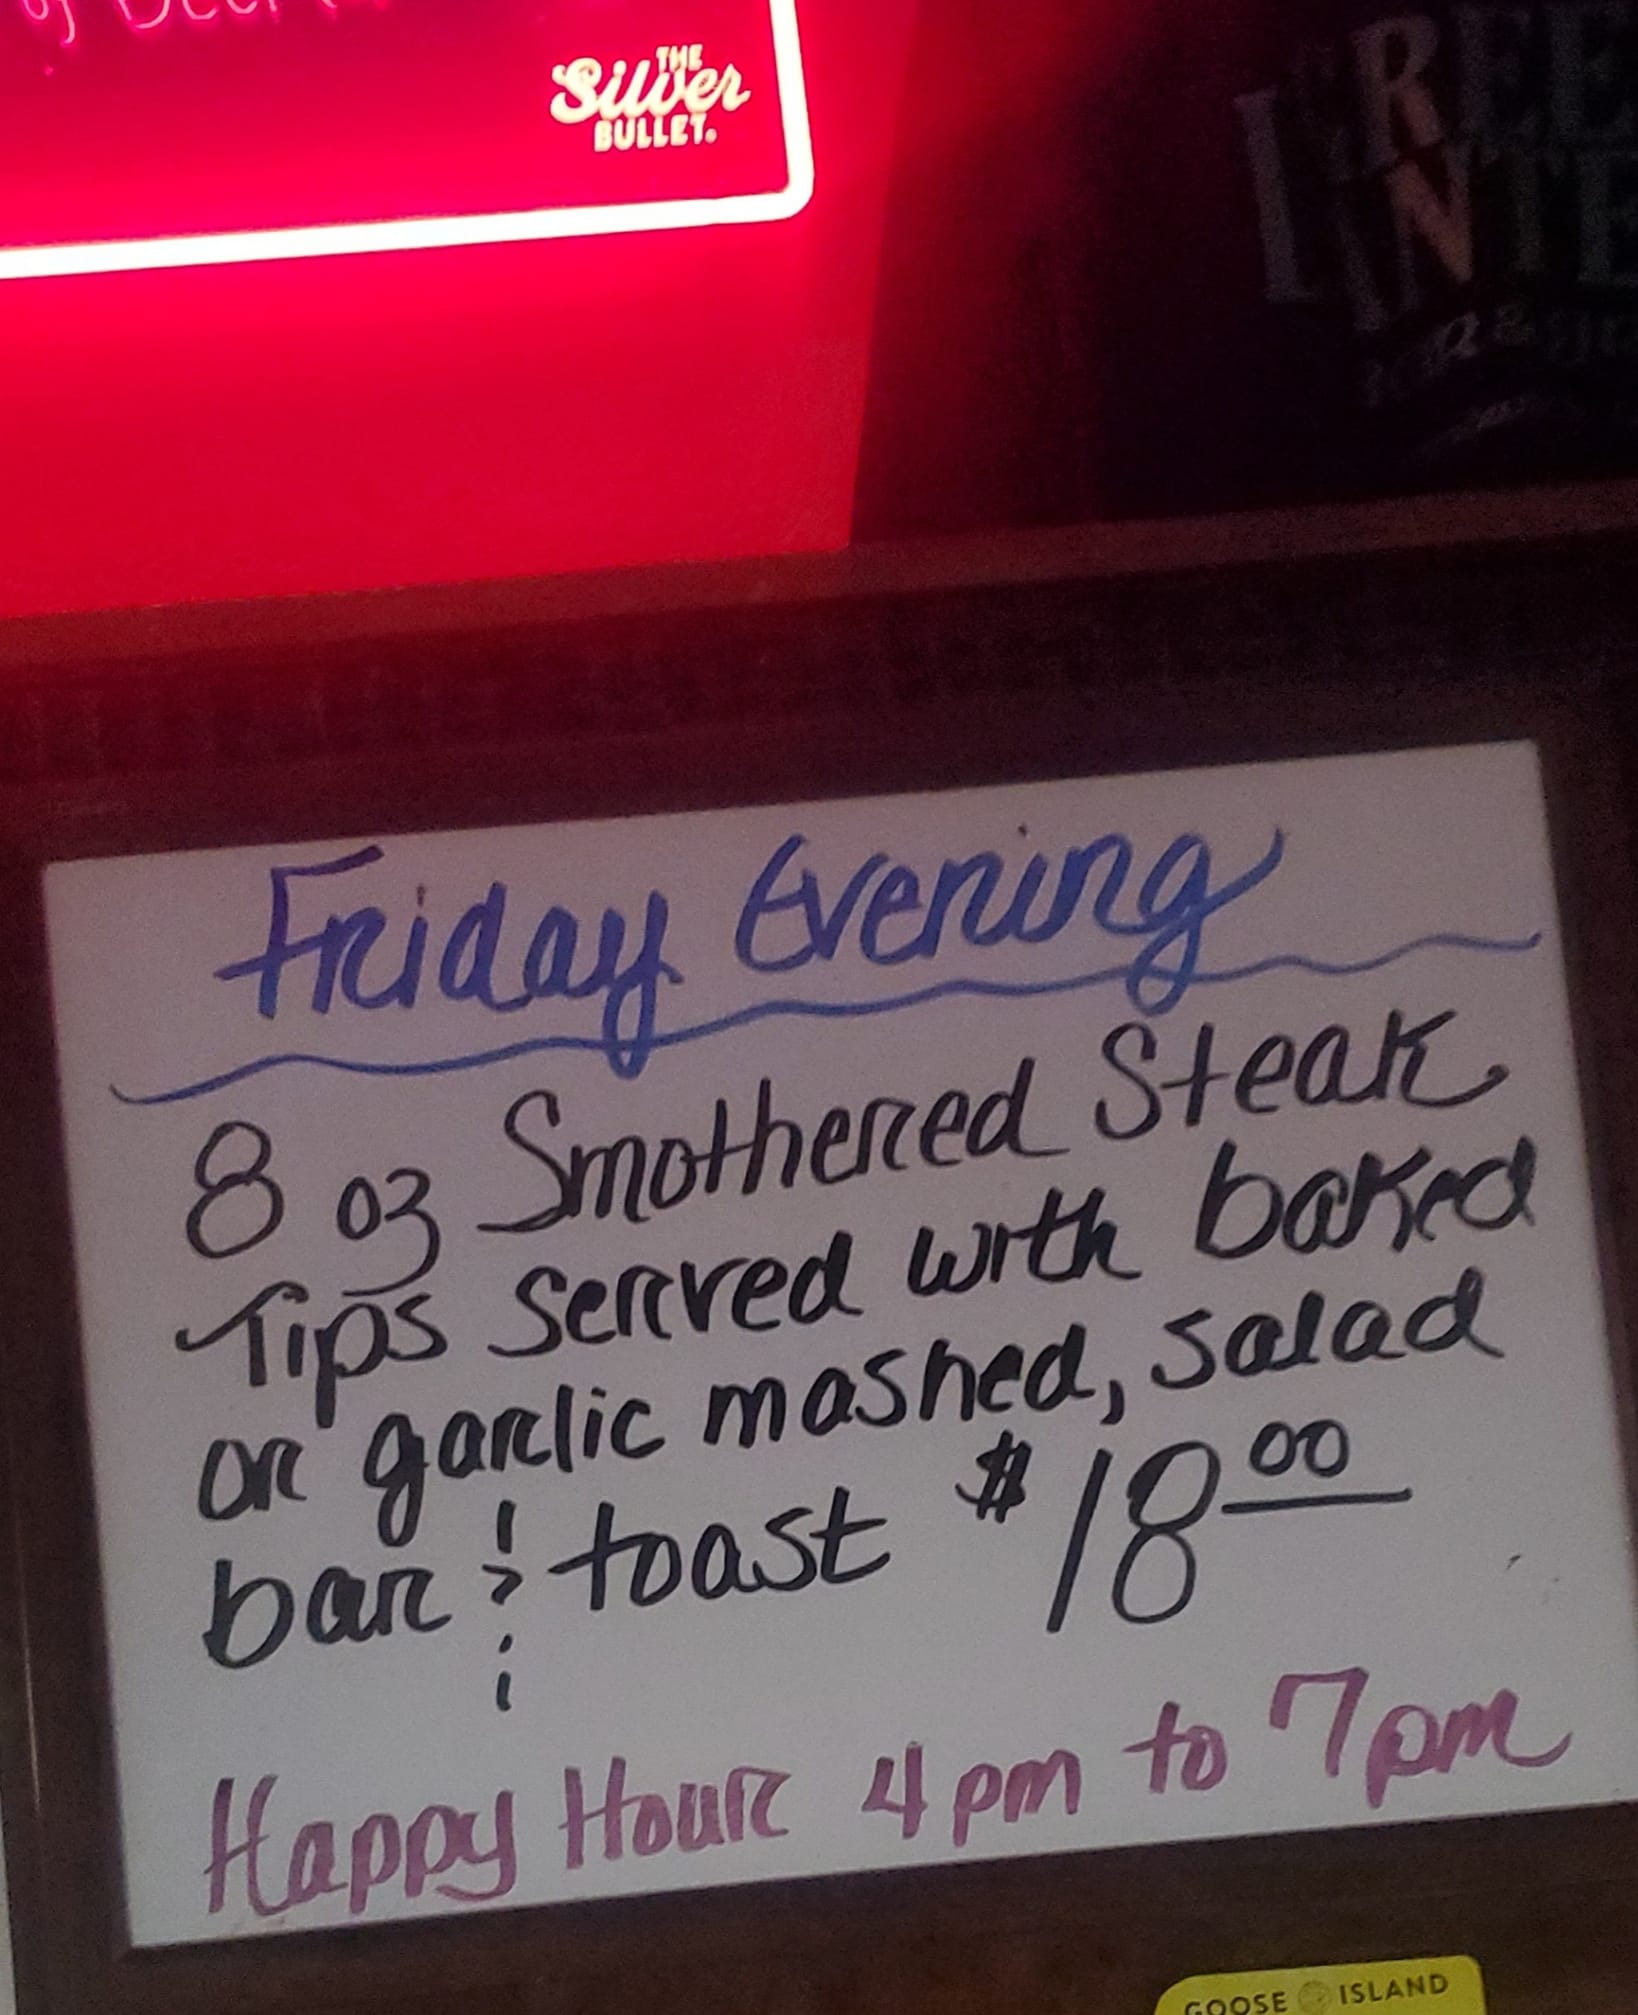 THE
Silver
BULLET.
Friday Evening
8 oz Smothered Steak
Tips served with baked
or garlic mashed, salad
bar & toast $18.00
Happy Hour 4pm to 7pm
GOOSE ISLAND